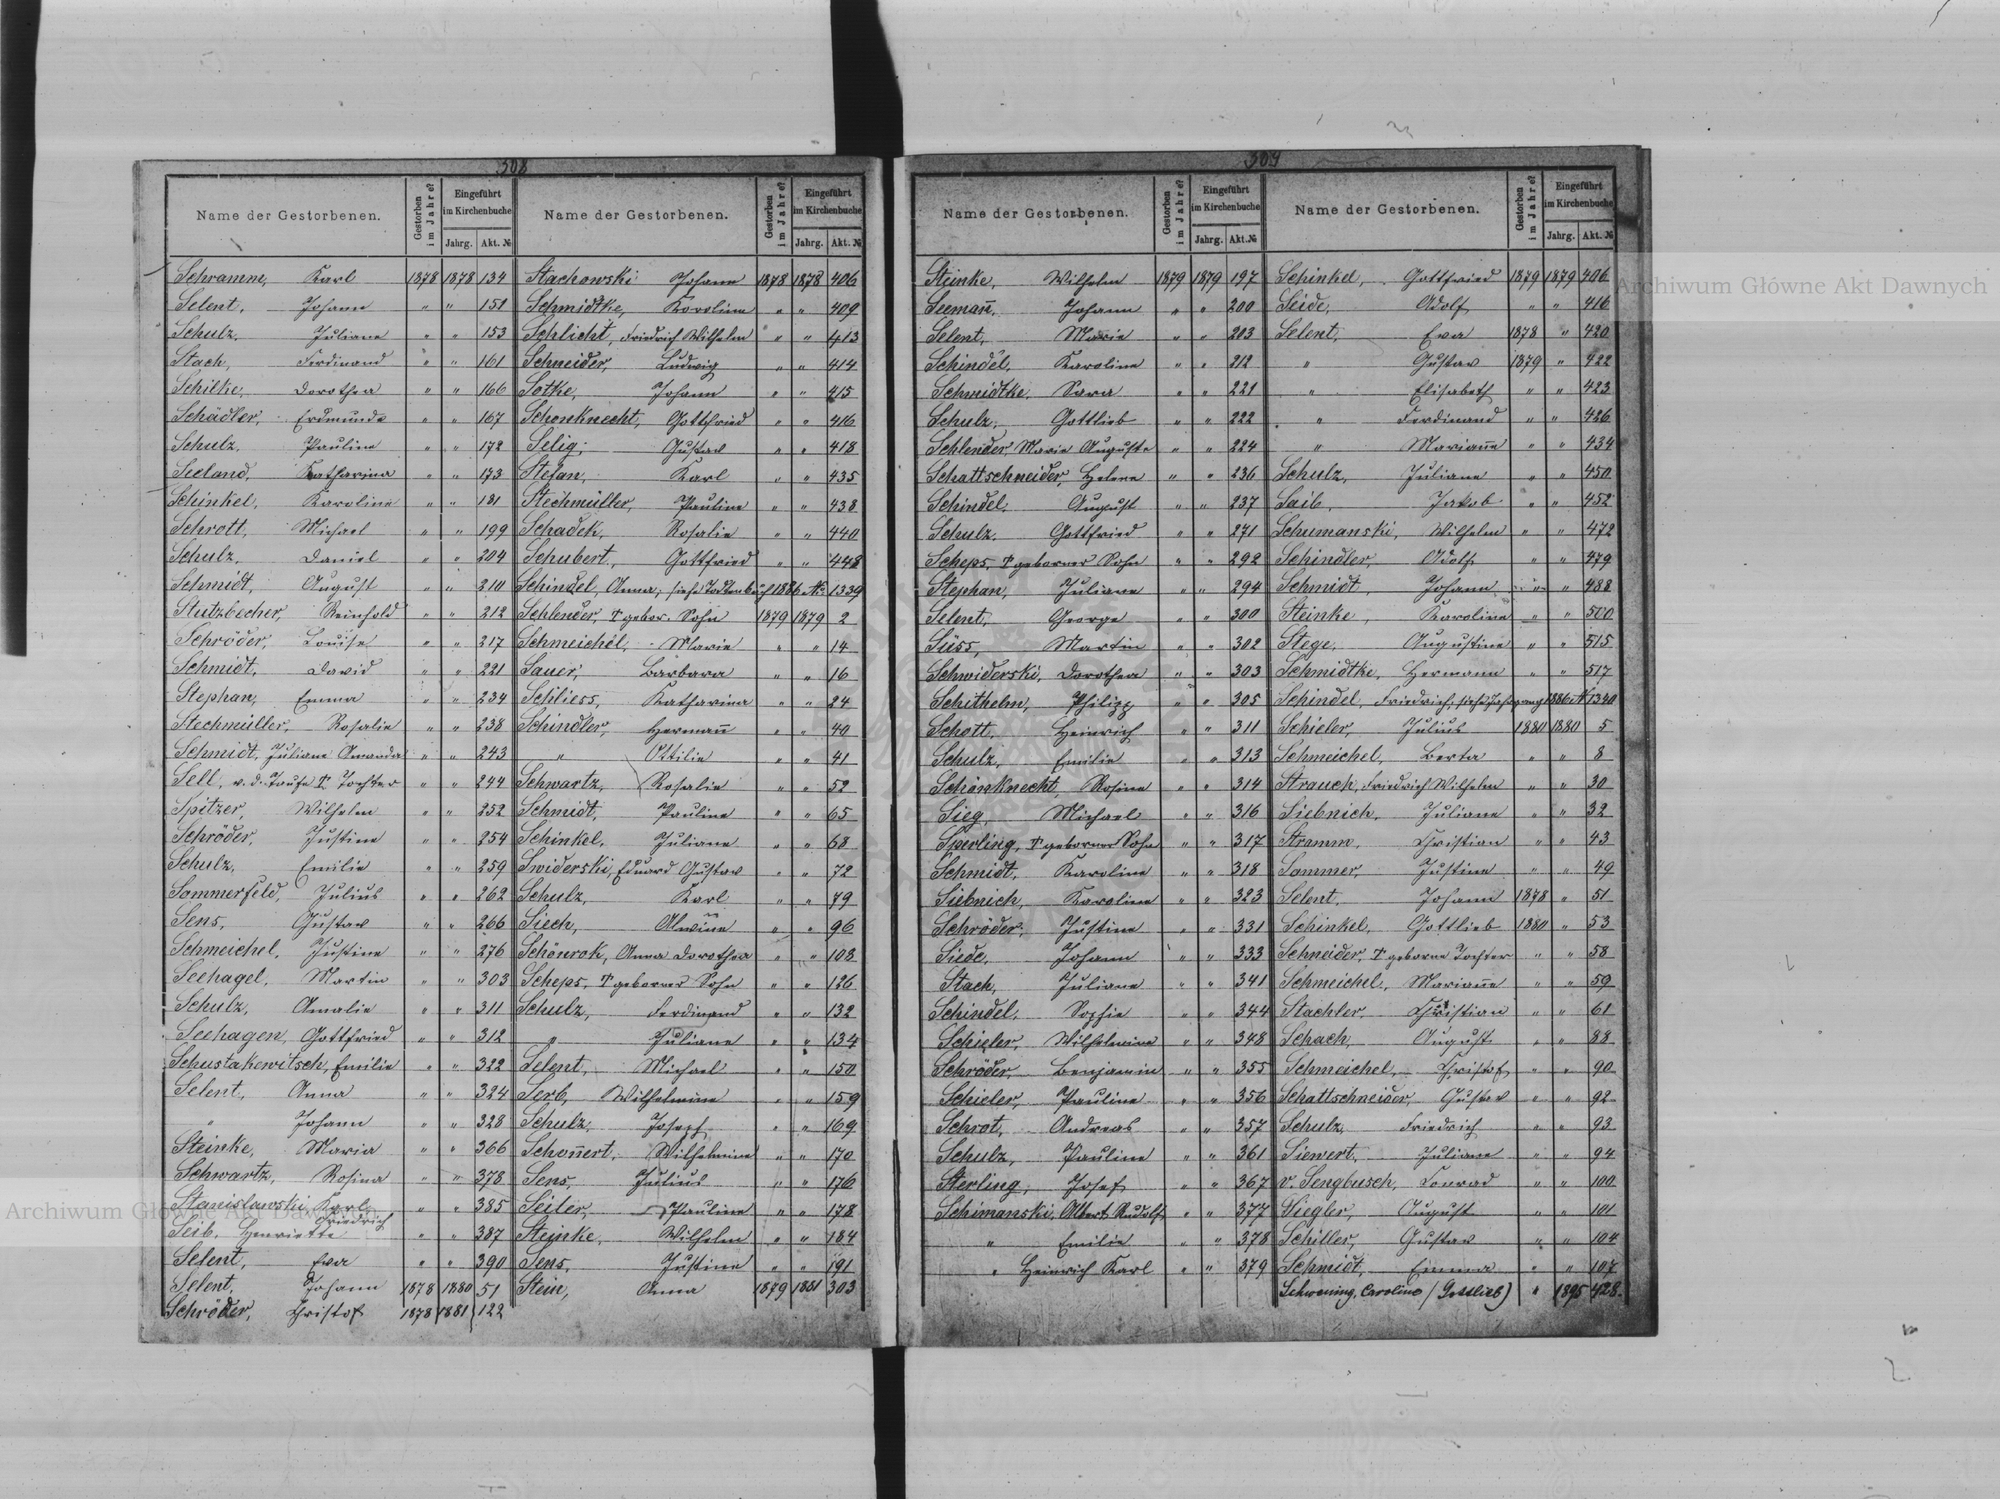 308
Name der Gestorbenen. Gestorben im Jahre? Eingeführt im Kirchenbuche Jahrg. Akt. № Name der Gestorbenen. Gestorben im Jahre? Eingeführt im Kirchenbuche Jahrg. Akt. №
Schramm, Karl 1878 1878 134 Stachowski Johann 1878 1878 406
Selent, Johann " " 151 Schmidtke, Karoline " " 409
Schulz, Juliane " " 153 Schlicht, Friedrich Wilhelm " " 413
Stach, Ferdinand " " 161 Schneider, Ludwig " " 414
Schilke, Dorothea " " 166 Sotke, Johann " " 415
Schädler, Erdmunde " " 167 Schonknecht, Gottfried " " 416
Schulz, Pauline " " 172 Selig, Gustav " " 418
Seeland, Katharina " " 173 Stefan, Karl " " 435
Schinkel, Karoline " " 181 Stechmüller, Pauline " " 438
Schrott, Michael " " 199 Schadek, Rosalie " " 440
Schulz, Daniel " " 204 Schubert, Gottfried " " 448
Schmidt, August " " 210 Schindel, Anna, siehe Todtenbuch 1886 № 1339
Stutzbecher, Reinhold " " 212 Schlender, † gebor. Sohn 1879 1879 2
Schröder, Louise " " 217 Schmeichel, Marie " " 14
Schmidt, David " " 221 Sauer, Barbara " " 16
Stephan, Emma " " 234 Schliess, Katharina " " 24
Stechmüller, Rosalie " " 238 Schindler, Hermañ " " 40
Schmidt, Juliane Amanda " " 243 " Ottilie " " 41
Sell, v. d. Taufe † Tochter " " 244 Schwartz, Rosalie " " 52
Spitzer, Wilhelm " " 252 Schmidt, Pauline " " 65
Schröder, Justine " " 254 Schinkel, Juliane " " 68
Schulz, Emilie " " 259 Swiderski, Eduard Gustav " " 72
Sommerfeld, Julius " " 262 Schulz, Karl " " 79
Sens, Gustav " " 266 Siech, Alwine " " 96
Schmeichel, Justine " " 276 Schönrok, Anna Dorothea " " 108
Seehagel, Martin " " 303 Scheps, † geborner Sohn " " 126
Schulz, Amalie " " 311 Schulz, Ferdinand " " 132
Seehagen, Gottfried " " 312 " Juliane " " 134
Schustakewitsch, Emilie " " 322 Selent, Michael " " 150
Selent, Anna " " 324 Serb, Wilhelmine " " 159
" Johann " " 328 Schulz, Joseph " " 169
Steinke, Maria " " 366 Schoñert, Wilhelmine " " 170
Schwartz, Rosina " " 378 Sens, Julius " " 176
Stanislawski Karl Friedrich " " 385 Seiler, Pauline " " 178
Seib, Henriette " " 387 Steinke, Wilhelm " " 184
Selent, Eva " " 390 Sens, Justine " " 191
Selent, Johann 1878 1880 51 Stein, Anna 1879 1881 303
Schröder, Christof 1878 1881 122
309
Name der Gestorbenen. Gestorben im Jahre? Eingeführt im Kirchenbuche Jahrg. Akt. № Name der Gestorbenen. Gestorben im Jahre? Eingeführt im Kirchenbuche Jahrg. Akt. №
Steinke, Wilhelm 1879 1879 197 Schinkel, Gottfried 1879 1879 406
Seemañ, Johann " " 200 Seide, Adolf " " 416
Selent, Marie " " 203 Selent, Eva 1878 " 420
Schindel, Karoline " " 212 " Gustav 1879 " 422
Schmidtke, Sara " " 221 " Elisabeth " " 423
Schulz, Gottlieb " " 222 " Ferdinand " " 426
Schlender, Marie Auguste " " 224 " Mariañe " " 434
Schattschneider, Helene " " 236 Schulz, Juliane " " 450
Schindel, August " " 237 Saib, Jakob " " 452
Schulz, Gottfried " " 271 Schumanski, Wilhelm " " 472
Scheps, † geborner Sohn " " 292 Schindler, Adolf " " 479
Stephan, Juliane " " 294 Schmidt, Johann " " 488
Selent, George " " 300 Steinke, Karoline " " 500
Süss, Martin " " 302 Stege, Augustine " " 515
Schwiderski, Dorothea " " 303 Schmidtke, Hermann " " 517
Schithelm, Philipp " " 305 Schindel, Friedrich, siehe Jahrgang 1886 № 1340
Schott, Heinrich " " 311 Schieler, Julius 1880 1880 5
Schulz, Emilie " " 313 Schmeichel, Berta " " 8
Schönknecht, Rosine " " 314 Strauch, Friedrich Wilhelm " " 30
Sieg, Michael " " 316 Siebnich, Juliane " " 32
Sperling, † geborner Sohn " " 317 Stramm, Christian " " 43
Schmidt, Karoline " " 318 Sommer, Justine " " 49
Siebnich, Karoline " " 323 Selent, Johann 1878 " 51
Schröder, Justine " " 331 Schinkel, Gottlieb 1880 " 53
Siede, Johann " " 333 Schneider, † geborne Tochter " " 58
Stach, Juliane " " 341 Schmeichel, Mariañe " " 59
Schindel, Sophie " " 344 Stachler, Christian " " 61
Schieler, Wilhelmine " " 348 Schach, August " " 88
Schröder, Benjamin " " 355 Schmeichel, Christof " " 90
Schieler, Pauline " " 356 Schattschneider, Gustav " " 92
Schrot, Andreas " " 357 Schulz, Friedrich " " 93
Schulz, Pauline " " 361 Siewert, Juliane " " 94
Sterling, Josef " " 367 v. Sengbusch, Conrad " " 100
Schimanski, Albert Rudolf " " 377 Siegler, August " " 101
" Emilie " " 378 Schiller, Gustav " " 104
" Heinrich Karl " " 379 Schmidt, Emma " " 107
Schwening, Caroline (Gottlieb) " 1895 428.
Archiwum Główne Akt Dawnych
Archiwum Główne Akt Dawnych